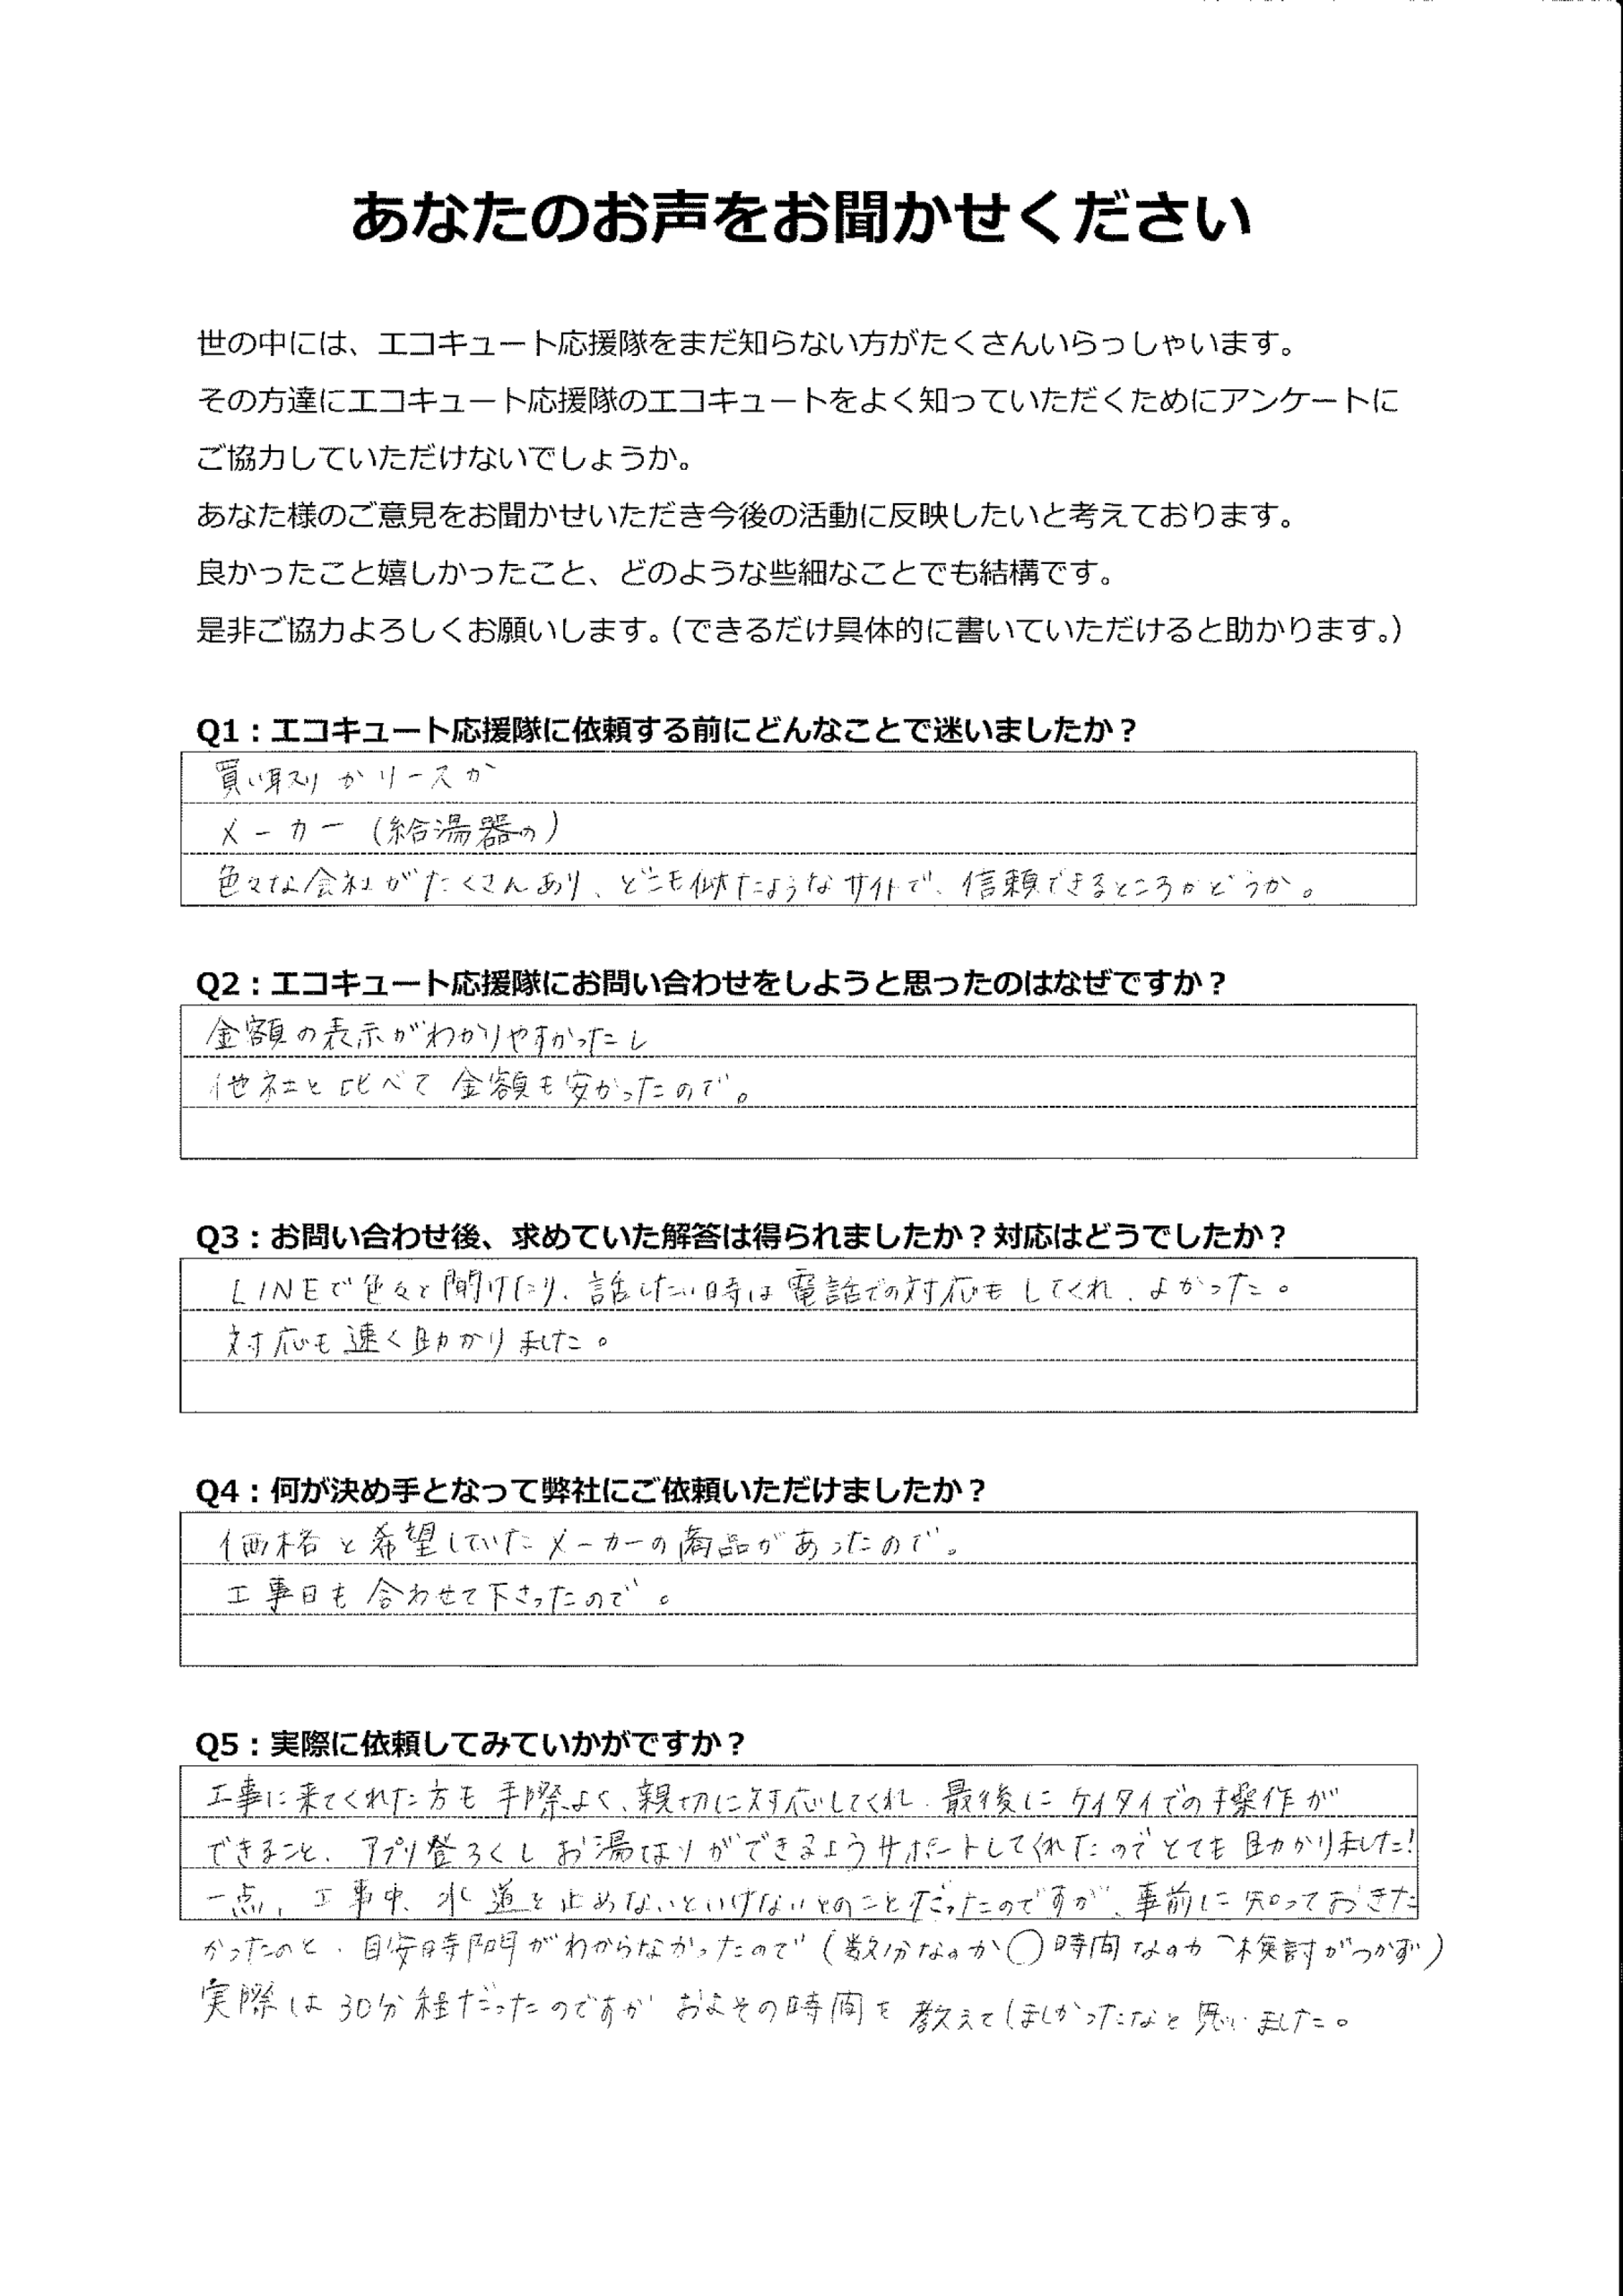 あなたのお声をお聞かせください
世の中には、エコキュート応援隊をまだ知らない方がたくさんいらっしゃいます。
その方達にエコキュート応援隊のエコキュートをよく知っていただくためにアンケートに
ご協力していただけないでしょうか。
あなた様のご意見をお聞かせいただき今後の活動に反映したいと考えております。
良かったこと嬉しかったこと、どのような些細なことでも結構です。
是非ご協力よろしくお願いします。（できるだけ具体的に書いていただけると助かります。）
Q1：エコキュート応援隊に依頼する前にどんなことで迷いましたか？
買い取りかリースか
メーカー（給湯器の）
色々な会社がたくさんあり、どこも似たようなサイトで、信頼できるところかどうか。
Q2：エコキュート応援隊にお問い合わせをしようと思ったのはなぜですか？
金額の表示がわかりやすかったし
他社と比べて金額も安かったので。
Q3：お問い合わせ後、求めていた解答は得られましたか？対応はどうでしたか？
LINEで色々と聞けたり、話したい時は電話での対応もしてくれ、よかった。
対応も速く助かりました。
Q4：何が決め手となって弊社にご依頼いただけましたか？
価格と希望していたメーカーの商品があったので。
工事日も合わせて下さったので。
Q5：実際に依頼してみていかがですか？
工事に来てくれた方も手際よく、親切に対応してくれ、最後にケイタイでの操作が
できること、アプリ登ろくしお湯はりができるようサポートしてくれたのでとても助かりました！
一点、工事中、水道を止めないといけないとのことだったのですが、事前に知っておきた
かったのと、目安時間がわからなかったので（数分なのか〇時間なのか検討がつかず）
実際は30分程だったのですがおよその時間を教えてほしかったなと思いました。